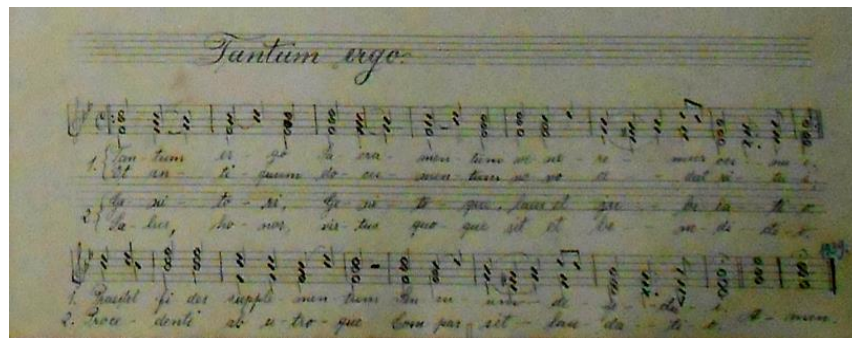 Tantum ergo.
1. { Tan - tum er - go sa - cra - men - tum ve - ne - re - mur cer - nu - i,
Et an - ti - quum do - cu - men - tum no - vo ce - dat ri - tu - i,
2. { Ge - ni - to - ri, Ge - ni - to - que, laus et ju - bi - la - ti - o
Sa - lus, ho - nor, vir - tus quo - que sit et be - ne - di - cti - o,
1. Praestet fi des supple - men - tum sen - su - um de - fe - ctu - i.
2. Proce - denti ab u - tro - que Com par sit - lau - da - ti - o. A - men.